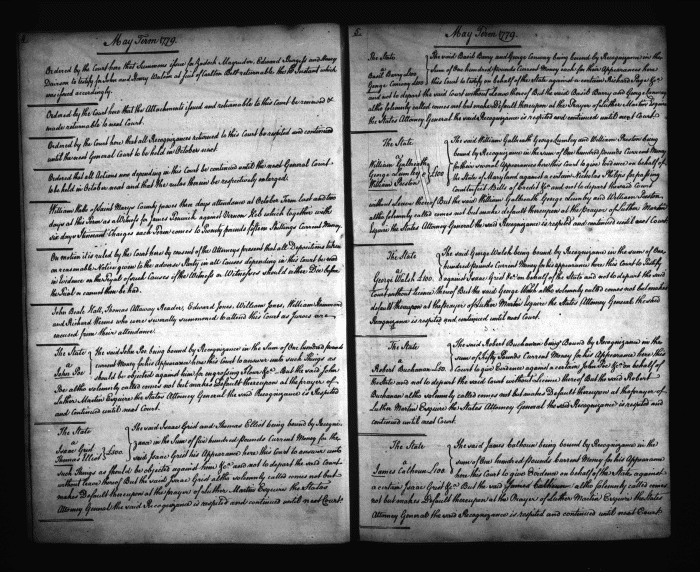 May Term 1779.
Ordered by the Court here that Summons issue for Zadock Magruder, Edward and Henry
to testify for John and Henry at Suit of returnable the Instant which
was issued accordingly.
Ordered by the Court here that the Attachments issued and returnable to this Court be renewed &
made returnable to next Court.
Ordered by the Court here that all Recognizances returned to this Court be respited and continued
until the next General Court to be held in October next
Ordered that all Actions now depending in this Court be continued until the next General Court
to be held in October next and that the rules therein be respectively enlarged.
William Holts of Saint Marys County proves three days attendance at October Term last and two
days at this Term as a Witness for James against which together with
six days Itinerant Charges each Term comes to Pounds fifteen Shillings Current Money
On motion it is ruled by the Court here by consent of the Attorneys present that all Depositions taken
on reasonable Notice given to the adverse Party in all Causes depending in this Court be read
in Evidence on the Tryals of such Causes if the Witness or Witnesses should either Die before
the Trial or cannot then be had.
John Beale Hall, Thomas Attaway Reader, Edward Jones, William Jones, William Hammond
and Richard who were severally summoned to attend this Court as Jurors are
excused from their attendance.
The State
a
John Poe
The said John Poe being bound by Recognizance in the Sum of One hundred pounds
current Money for his Appearance here this Court to answer unto such things as
should be objected against him for engrossing Flour &c. But the said John
Poe altho solemnly called comes not but makes Default thereupon at the prayer of
Luther Martin Esquire the States Attorney General the said Recognizance is Respited
and continued until next Court.
The State
a
Isaac Grist
Thomas Elliot £500
The said Isaac Grist and Thomas Elliot being bound by Recogni-
zance in the Sum of five hundred pounds Current Money for the
said Isaac Grist his Appearance here this Court to answer unto
such things as should be objected against him &c. and not to depart the said Court
without leave thereof But the said Isaac Grist altho solemnly called comes not but
makes Default thereupon at the prayer of Luther Martin Esquire the States
Attorney General the said Recognizance is respited and continued until next Court.
2.
May Term 1779.
The State
a
Basil Barry £100
George Conway £100
The said Basil Barry and George Conway being bound by Recognizance in the
Sum of One hundred Pounds Current Money for their Appearances here
this Court to testify on behalf of the State against a certain Richard Page &c.
and not to depart the said Court without leave thereof But the said Basil Barry and George Conway
altho solemnly called comes not but make Default thereupon at the Prayer of Luther Martin Esquire
the States Attorney General the said Recognizance is respited and continued until next Court.
The State
a
William Galbreath
George Lumley
William Preston
£100
The said William Galbreath George Lumley and William Preston being
bound by Recognizance in the sum of One hundred Pounds Current Money
for their several Appearances here this Court to give Evidence on behalf of
the State of Maryland against a certain Nicholas Philips for passing
Counterfeit Bills of Credit &c. and not to depart the said Court
without leave thereof But the said William Galbreath George Lumley and William Preston
altho solemnly called comes not but make default thereupon at the prayer of Luther Martin
Esquire the States Attorney General the said Recognizance is respited and continued until next Court
The State
a
George Welsh £100.
The said George Welsh being bound by Recognizance in the sum of One
hundred pounds Current Money for his appearance here this Court to Testify
against Isaac Grist &c. on behalf of the State and not to depart the said
Court without leave thereof But the said George Welsh altho solemnly called comes not but makes
default thereupon at the prayer of Luther Martin Esquire the States Attorney General the said
Recognizance is respited and continued until next Court.
The State
a
Robert Buchanan £50.
The said Robert Buchanan being bound by Recognizance in the
Sum of Fifty Pounds Current Money for his Appearance here this
Court to give Evidence against a certain John Poe &c. on behalf of
the State and not to depart the said Court without leave thereof But the said Robert
Buchanan altho solemnly called comes not but makes Default thereupon at the prayer of
Luther Martin Esquire the States Attorney General the said Recognizance is respited and
continued until next Court.
The State
a
James Calhoun £100.
The said James Calhoun being bound by Recognizance in the
sum of One hundred Pounds Current Money for his Appearance
here this Court to give Evidence on behalf of the State against
a certain Isaac Grist &c. But the said James Calhoun altho solemnly called comes
not but makes Default thereupon at the Prayer of Luther Martin Esquire the States
Attorney General the said Recognizance is respited and continued until next Court.